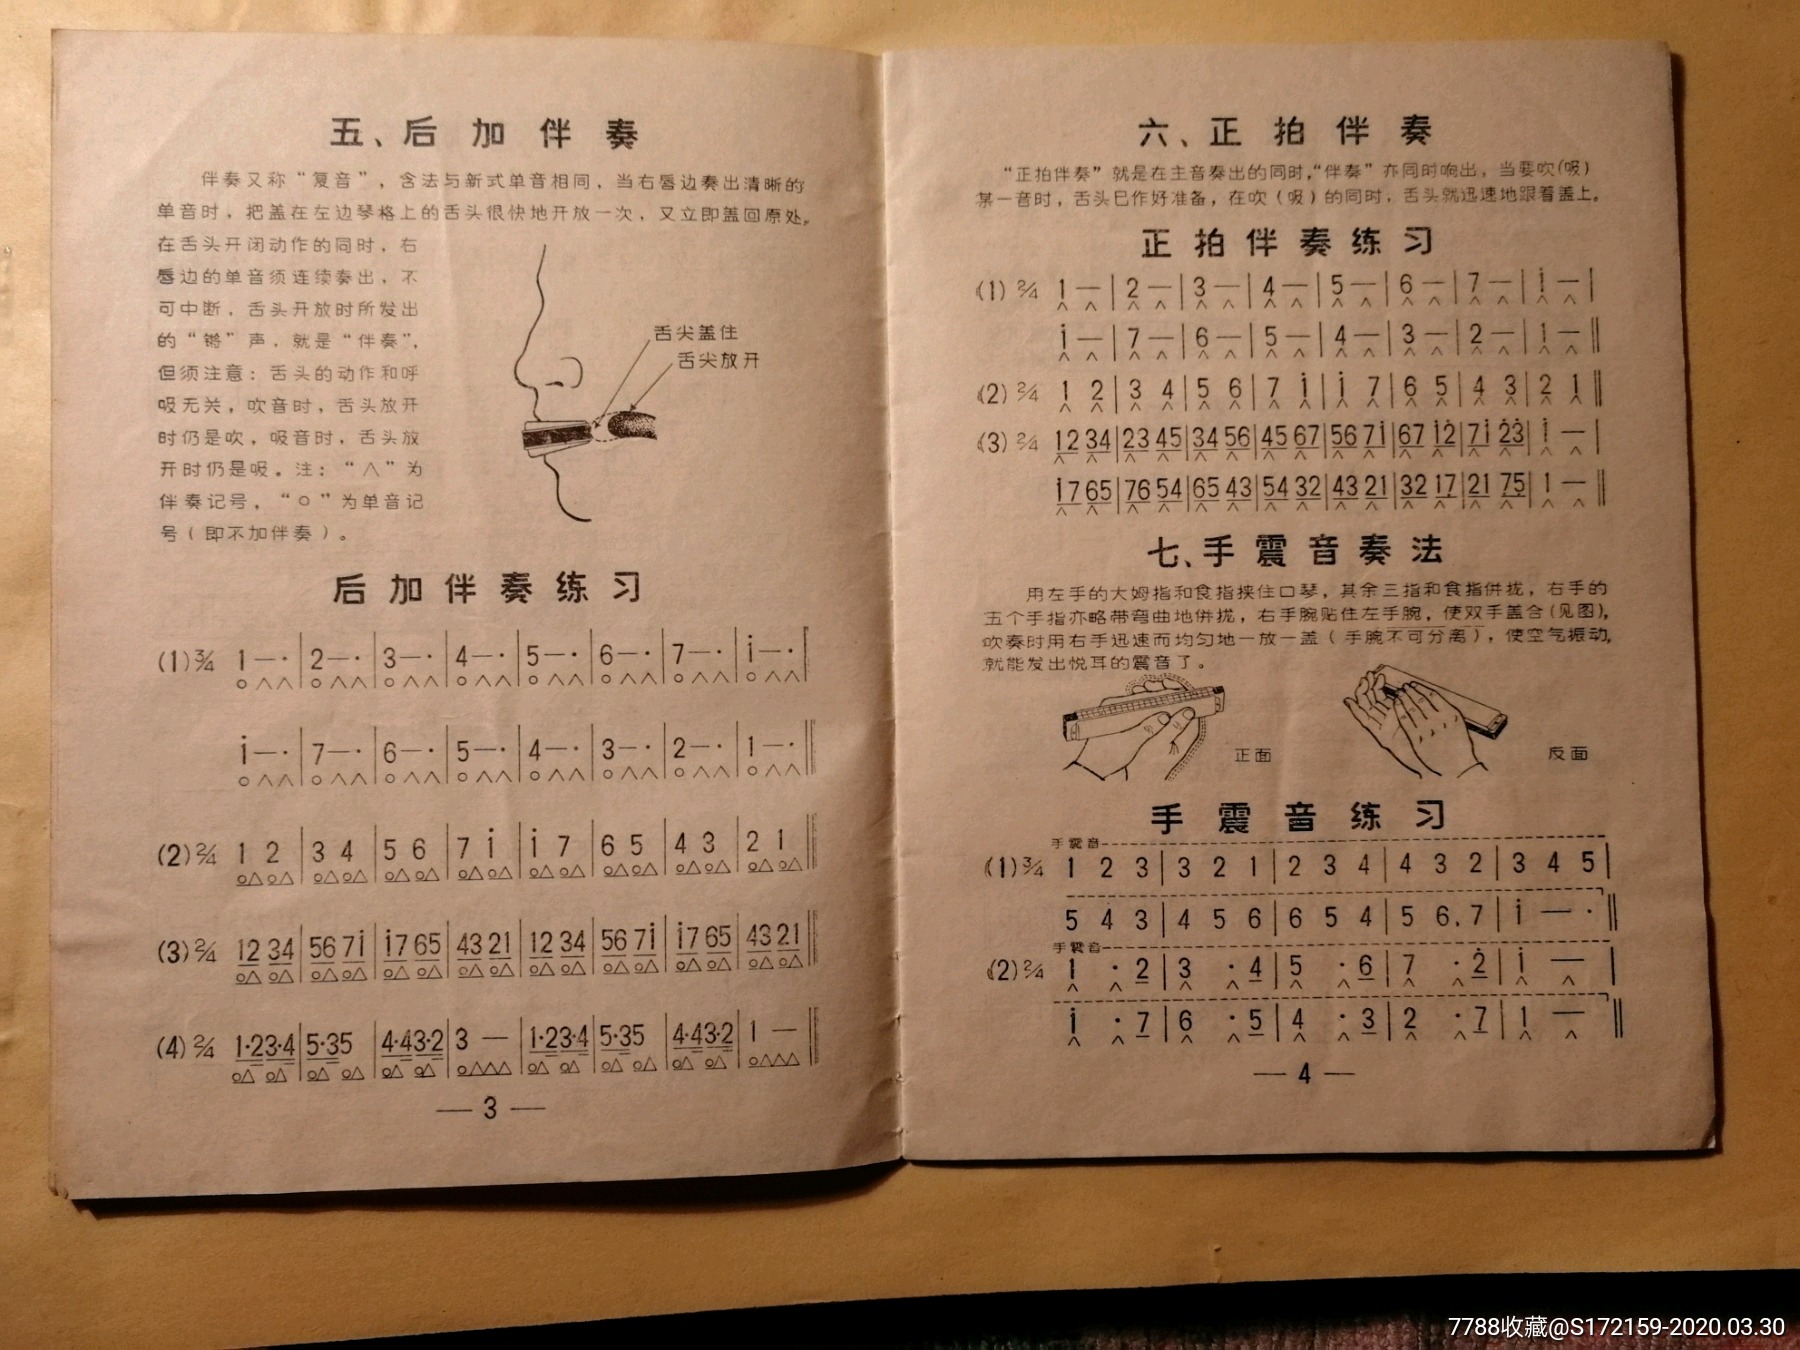 五、后加伴奏
伴奏又称“复音”，含法与新式单音相同，当右唇边奏出清晰的
单音时，把盖在左边琴格上的舌头很快地开放一次，又立即盖回原处。
在舌头开闭动作的同时，右
唇边的单音须连续奏出，不
可中断，舌头开放时所发出
的“锵”声，就是“伴奏”，
但须注意：舌头的动作和呼
吸无关，吹音时，舌头放开
时仍是吹，吸音时，舌头放
开时仍是吸。注：“∧”为
伴奏记号，“○”为单音记
号（即不加伴奏）。
舌尖盖住
舌尖放开
后加伴奏练习
(1) 3/4 1—·|2—·|3—·|4—·|5—·|6—·|7—·|i—·|
○∧∧ ○∧∧ ○∧∧ ○∧∧ ○∧∧ ○∧∧ ○∧∧ ○∧∧
i—·|7—·|6—·|5—·|4—·|3—·|2—·|1—·‖
○∧∧ ○∧∧ ○∧∧ ○∧∧ ○∧∧ ○∧∧ ○∧∧ ○∧∧
(2) 2/4 1 2|3 4|5 6|7 i|i 7|6 5|4 3|2 1‖
○△○△ ○△○△ ○△○△ ○△○△ ○△○△ ○△○△ ○△○△ ○△○△
(3) 2/4 12 34|56 7i|i7 65|43 21|12 34|56 7i|i7 65|43 21‖
○△○△ ○△○△ ○△○△ ○△○△ ○△○△ ○△○△ ○△○△ ○△○△
(4) 2/4 1·23·4|5·35|4·43·2|3 —|1·23·4|5·35|4·43·2|1 —‖
○△ ○△ ○△ ○△ ○△ ○△ ○△△△ ○△ ○△ ○△ ○△ ○△ ○△ ○△△△
— 3 —
六、正拍伴奏
“正拍伴奏”就是在主音奏出的同时，“伴奏”亦同时响出，当要吹(吸)
某一音时，舌头已作好准备，在吹（吸）的同时，舌头就迅速地跟着盖上。
正拍伴奏练习
(1) 2/4 1 —|2 —|3 —|4 —|5 —|6 —|7 —|i —|
∧ ∧ ∧ ∧ ∧ ∧ ∧ ∧ ∧ ∧ ∧ ∧ ∧ ∧ ∧ ∧
i —|7 —|6 —|5 —|4 —|3 —|2 —|1 —‖
∧ ∧ ∧ ∧ ∧ ∧ ∧ ∧ ∧ ∧ ∧ ∧ ∧ ∧ ∧ ∧
(2) 2/4 1 2|3 4|5 6|7 i|i 7|6 5|4 3|2 1‖
∧ ∧ ∧ ∧ ∧ ∧ ∧ ∧ ∧ ∧ ∧ ∧ ∧ ∧ ∧ ∧
(3) 2/4 12 34|23 45|34 56|45 67|56 7i|67 i2̇|7i 2̇3̇|i —|
∧ ∧ ∧ ∧ ∧ ∧ ∧ ∧ ∧ ∧ ∧ ∧ ∧ ∧ ∧ ∧
i7 65|76 54|65 43|54 32|43 21|32 17|21 75|1 —‖
∧ ∧ ∧ ∧ ∧ ∧ ∧ ∧ ∧ ∧ ∧ ∧ ∧ ∧ ∧ ∧
七、手震音奏法
用左手的大姆指和食指挟住口琴，其余三指和食指併拢，右手的
五个手指亦略带弯曲地併拢，右手腕贴住左手腕，使双手盖合(见图)，
吹奏时用右手迅速而均匀地一放一盖（手腕不可分离），使空气振动，
就能发出悦耳的震音了。
正面
反面
手震音练习
手震音
(1) 3/4 1 2 3|3 2 1|2 3 4|4 3 2|3 4 5|
5 4 3|4 5 6|6 5 4|5 6.7|i — ·‖
手震音
(2) 2/4 1 ·2|3 ·4|5 ·6|7 ·2̇|i —|
∧ ∧ ∧ ∧ ∧ ∧ ∧ ∧ ∧ ∧
i ·7|6 ·5|4 ·3|2 ·7|1 —‖
∧ ∧ ∧ ∧ ∧ ∧ ∧ ∧ ∧ ∧
— 4 —
7788收藏@S172159-2020.03.30